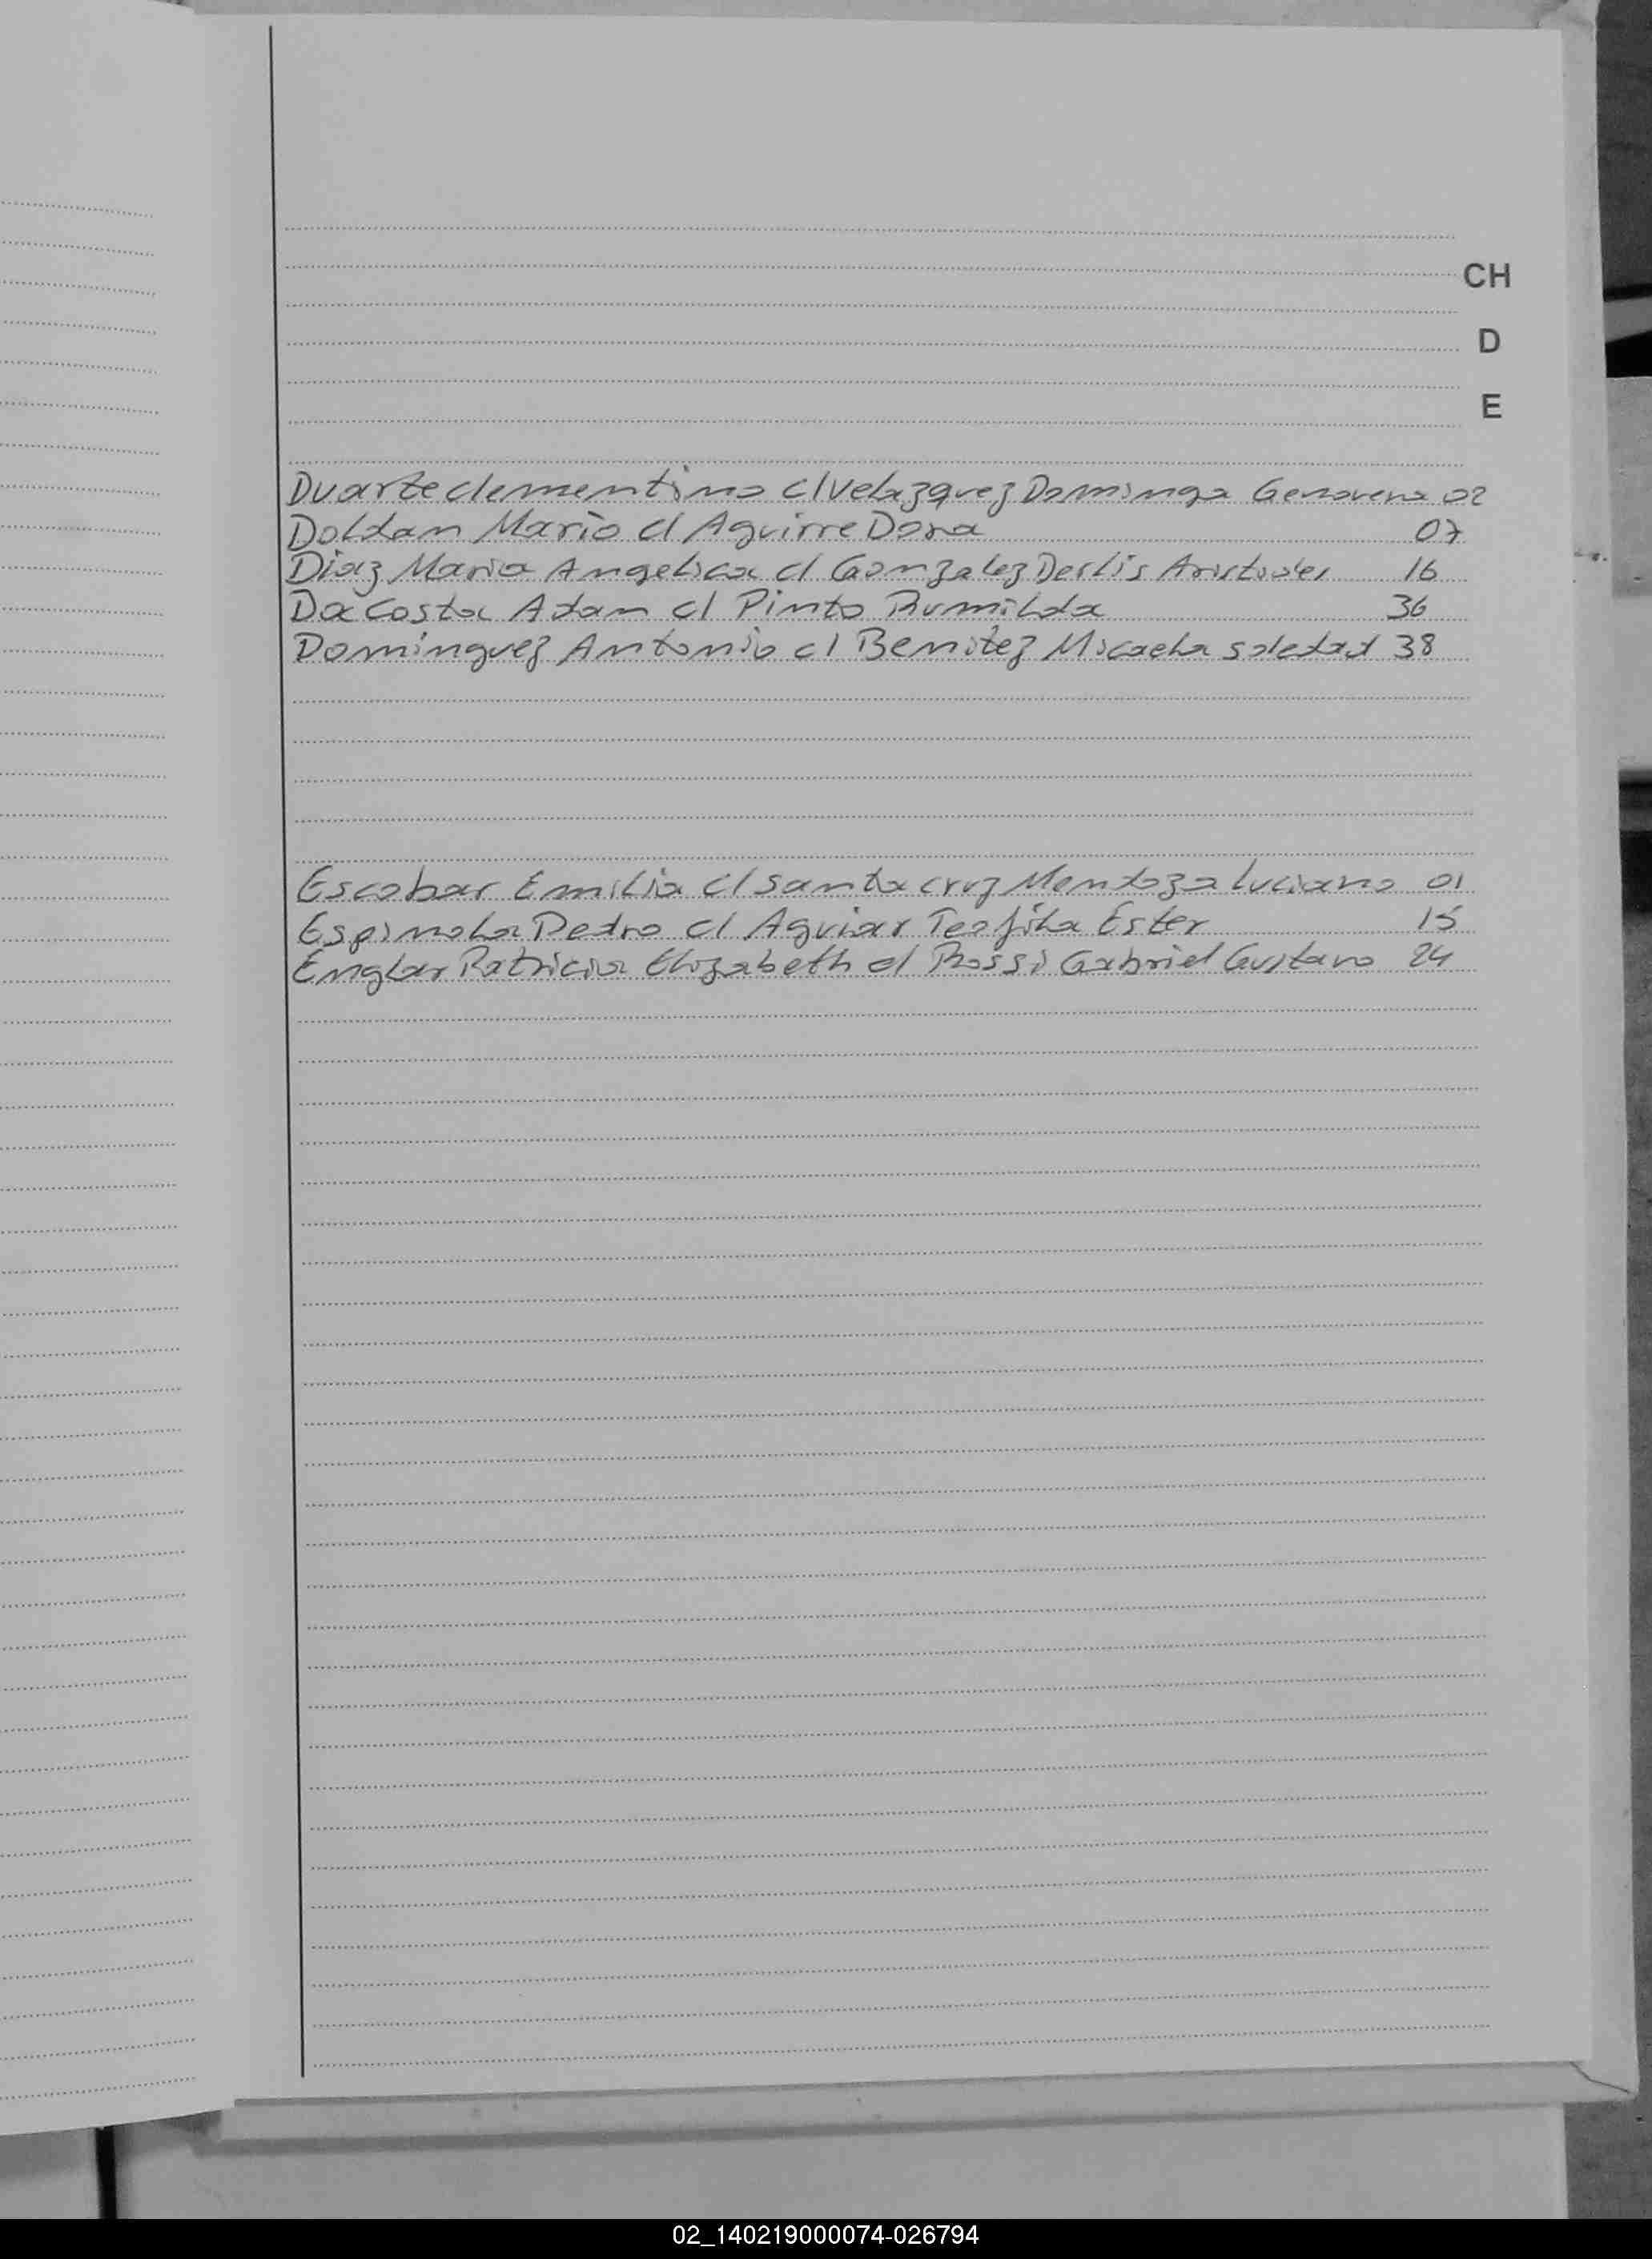 CH
D
E
Duarte clementino c/ Velazquez Dominga Genovena 02
Doldan Mario c/ Aguirre Dora 07
Diaz Maria Angelica c/ Gonzalez Derlis Aristides 16
Da Costa Adan c/ Pinto Rumilda 36
Dominguez Antonio c/ Benitez Micaela soledad 38
Escobar Emilia c/ santa cruz Mendoza luciano 01
Espinola Pedro c/ Aguiar Teofila Ester 15
Englar Patricia Elizabeth c/ Rossi Gabriel Gustavo 24
02_140219000074-026794